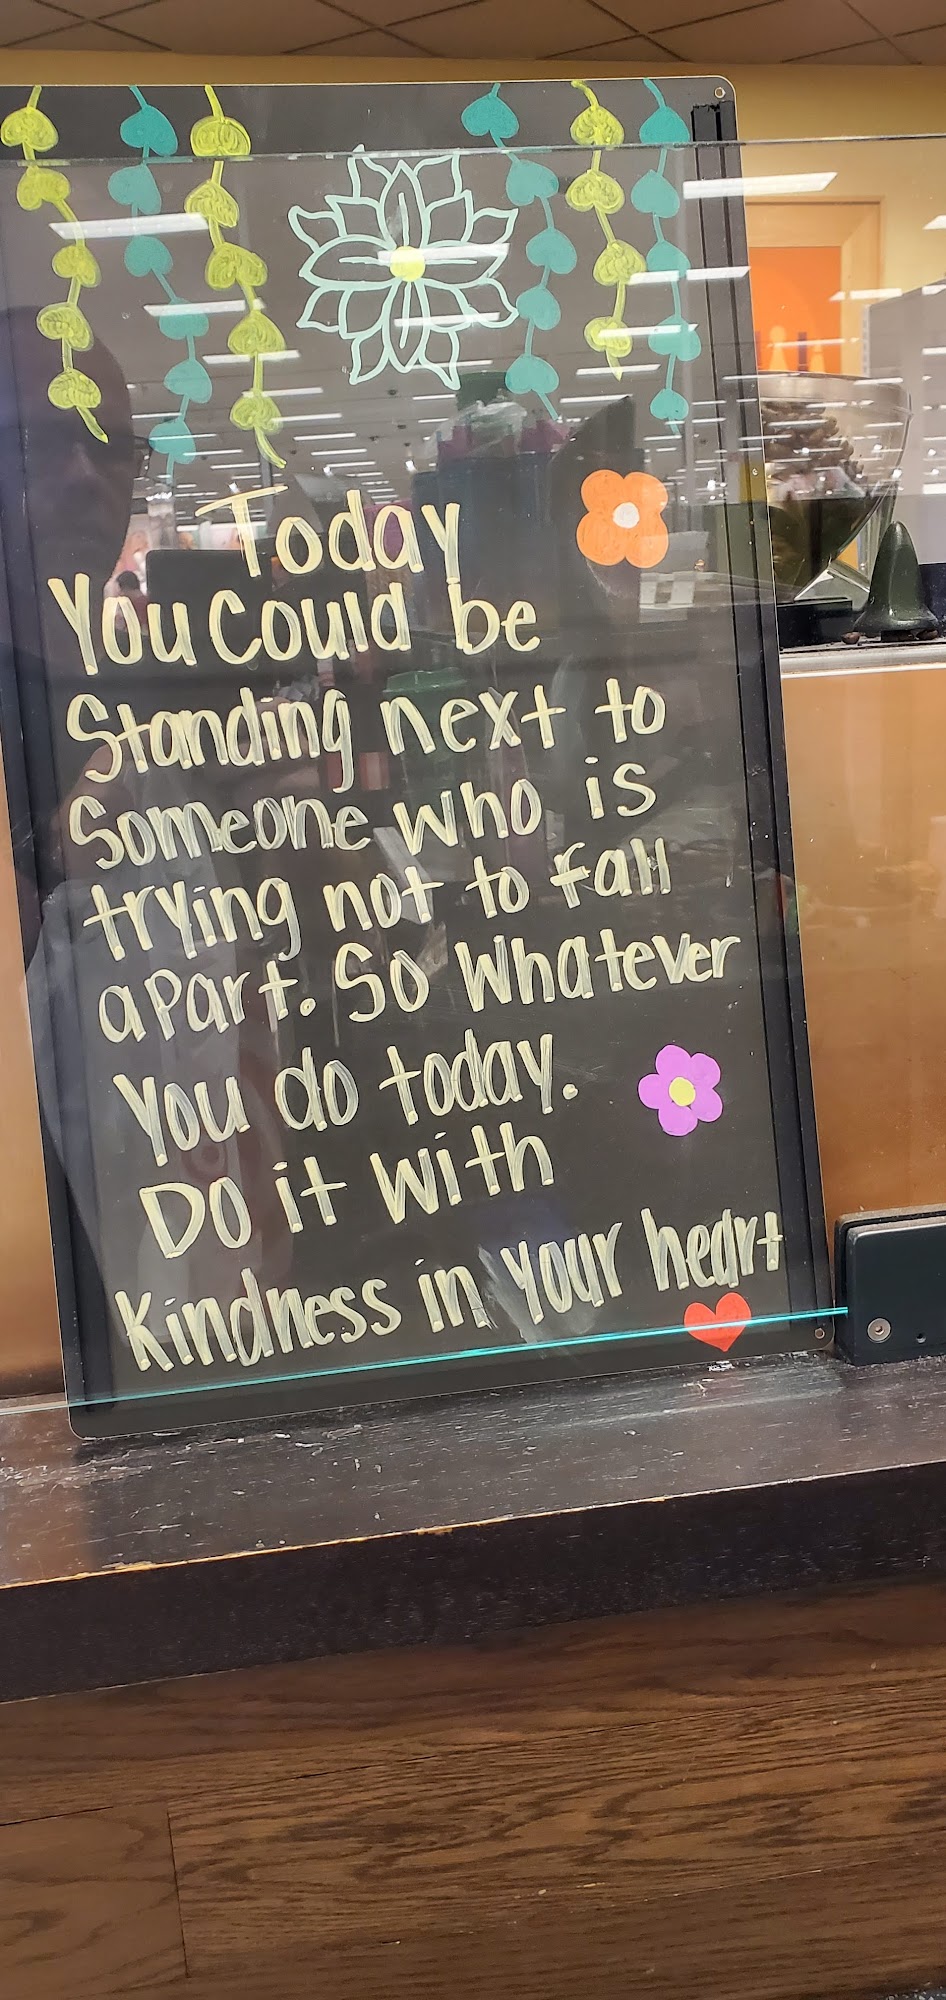 Today
You Could be
Standing next to
Someone who is
trying not to fall
apart. So Whatever
You do today.
Do it with
Kindness in your heart